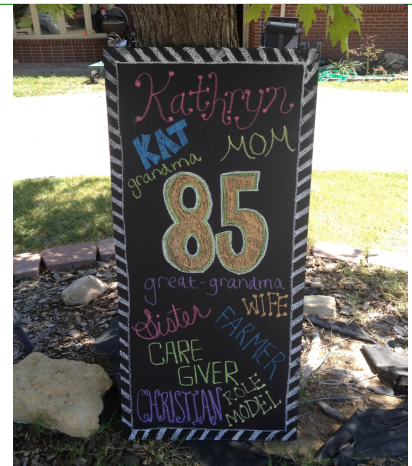 Kathryn
KAT
MOM
grandma
85
great-grandma
WIFE
Sister
FARMER
CARE
GIVER
CHRISTIAN
ROLE
MODEL